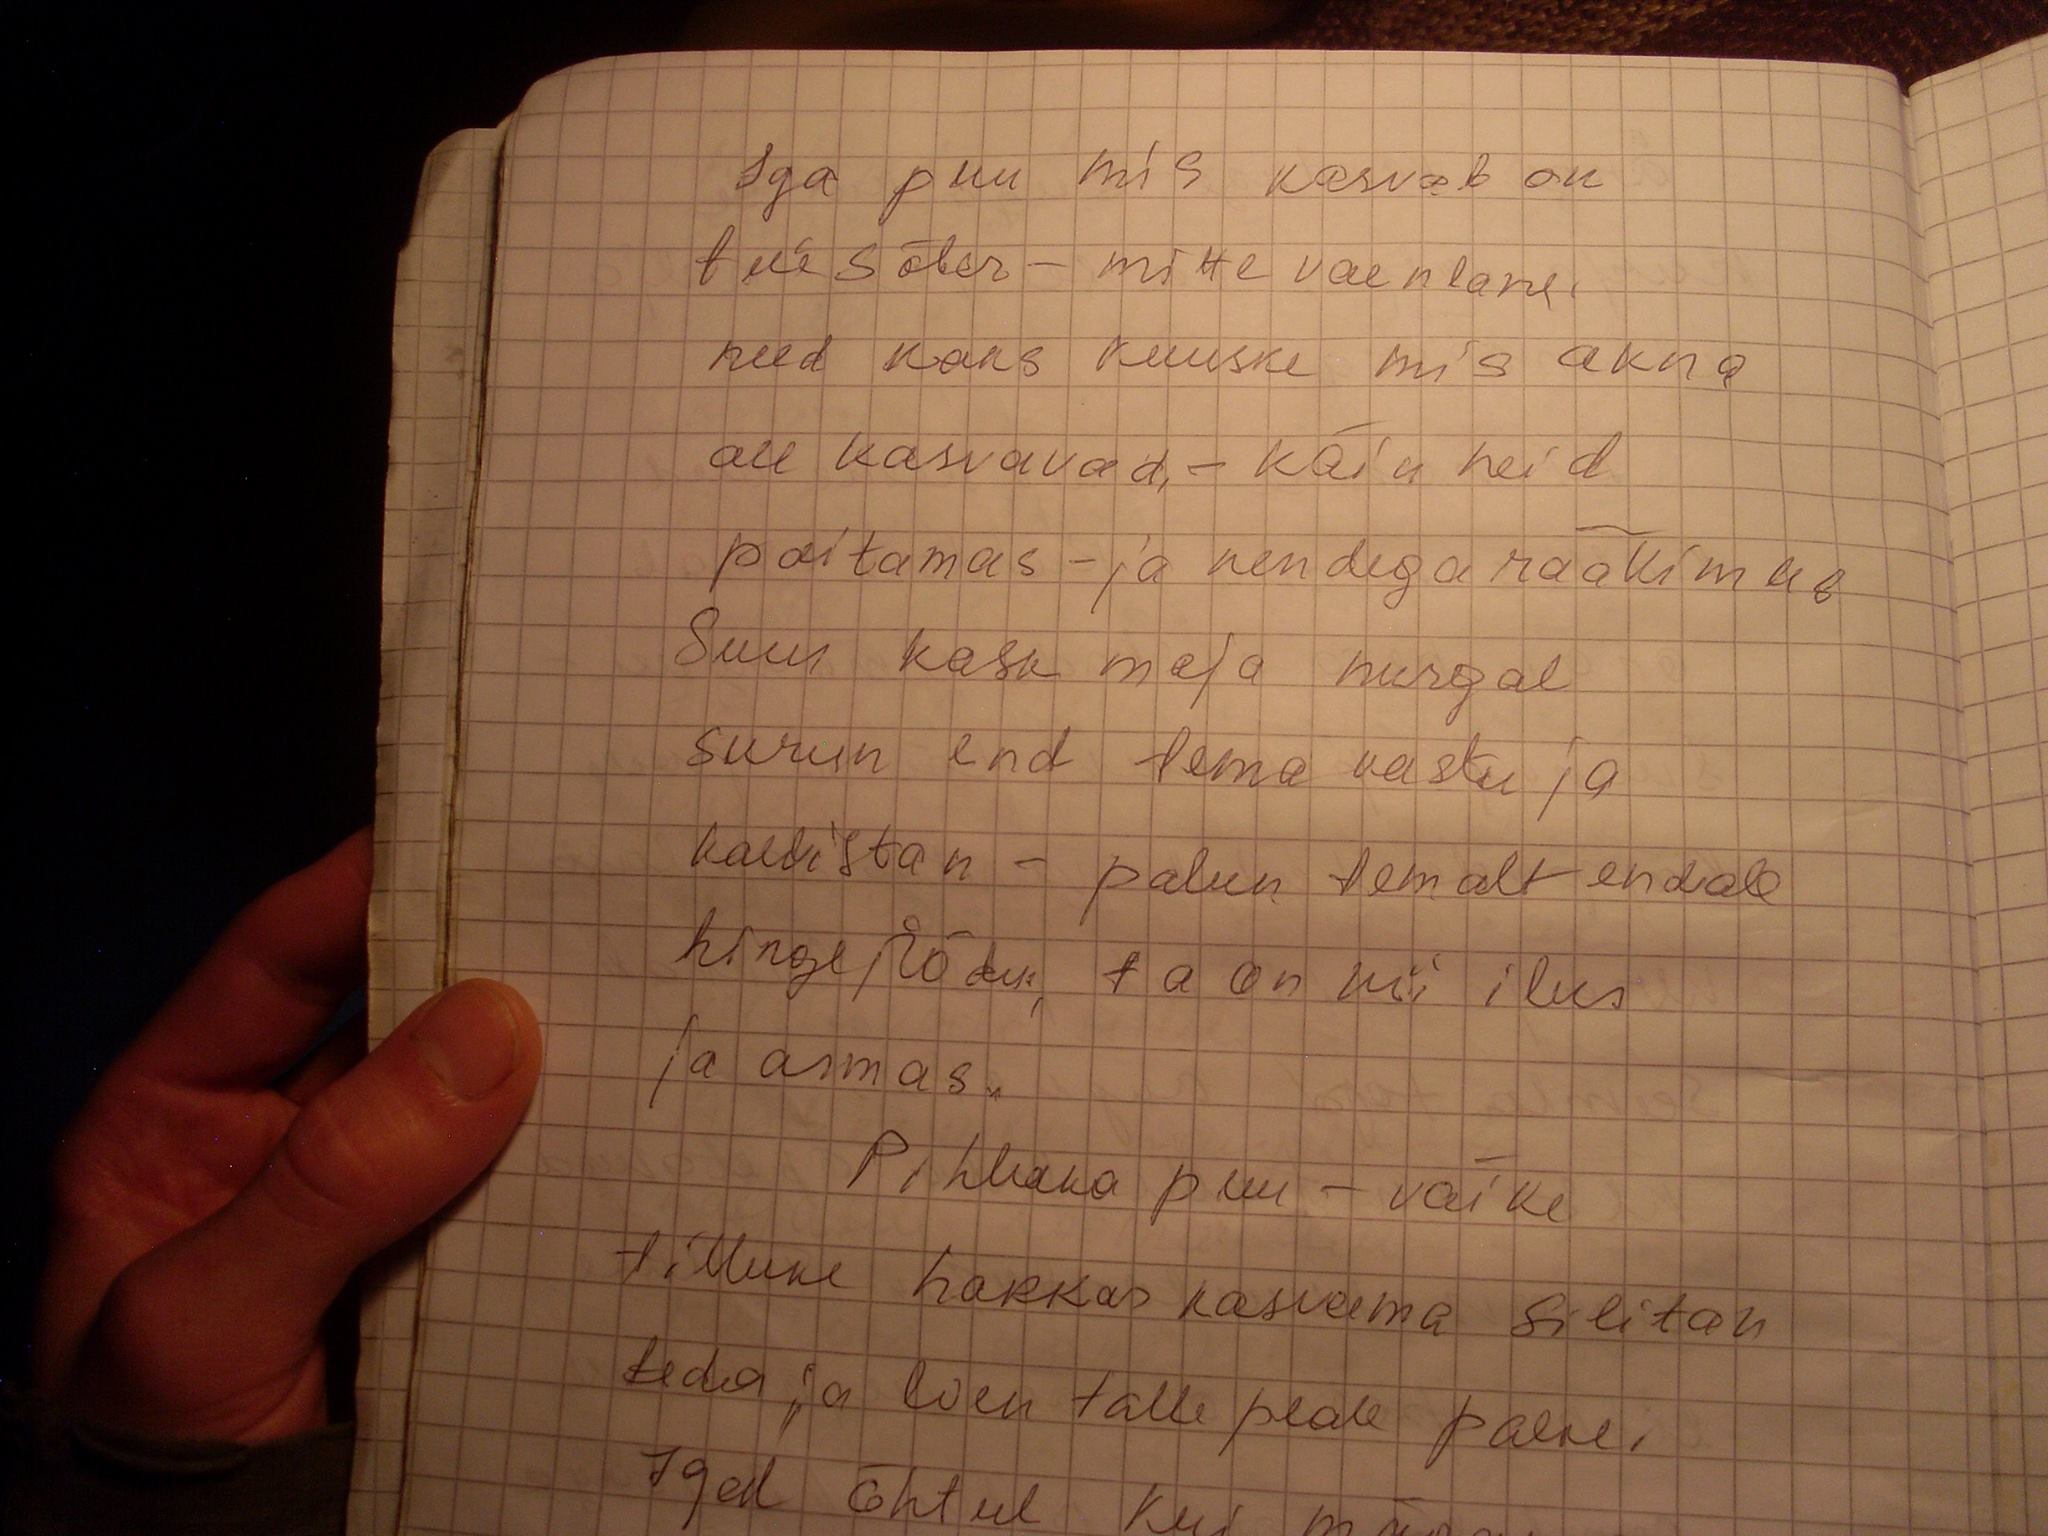 Iga puu mis kasvab on
teie sõber - mitte vaenlane.
need kaks kuuske mis akna
all kasvavad, - käin neid
paitamas - ja nendega rääkimas
Suur kask maja nurgal
surun end tema vastu ja
kallistan - palun temalt endale
hingejõudu, ta on nii ilus
ja armas.
Pihlaka puu - väike
tilluke hakkas kasvama silitan
teda ja loen talle peale palve.
Igal õhtul kui